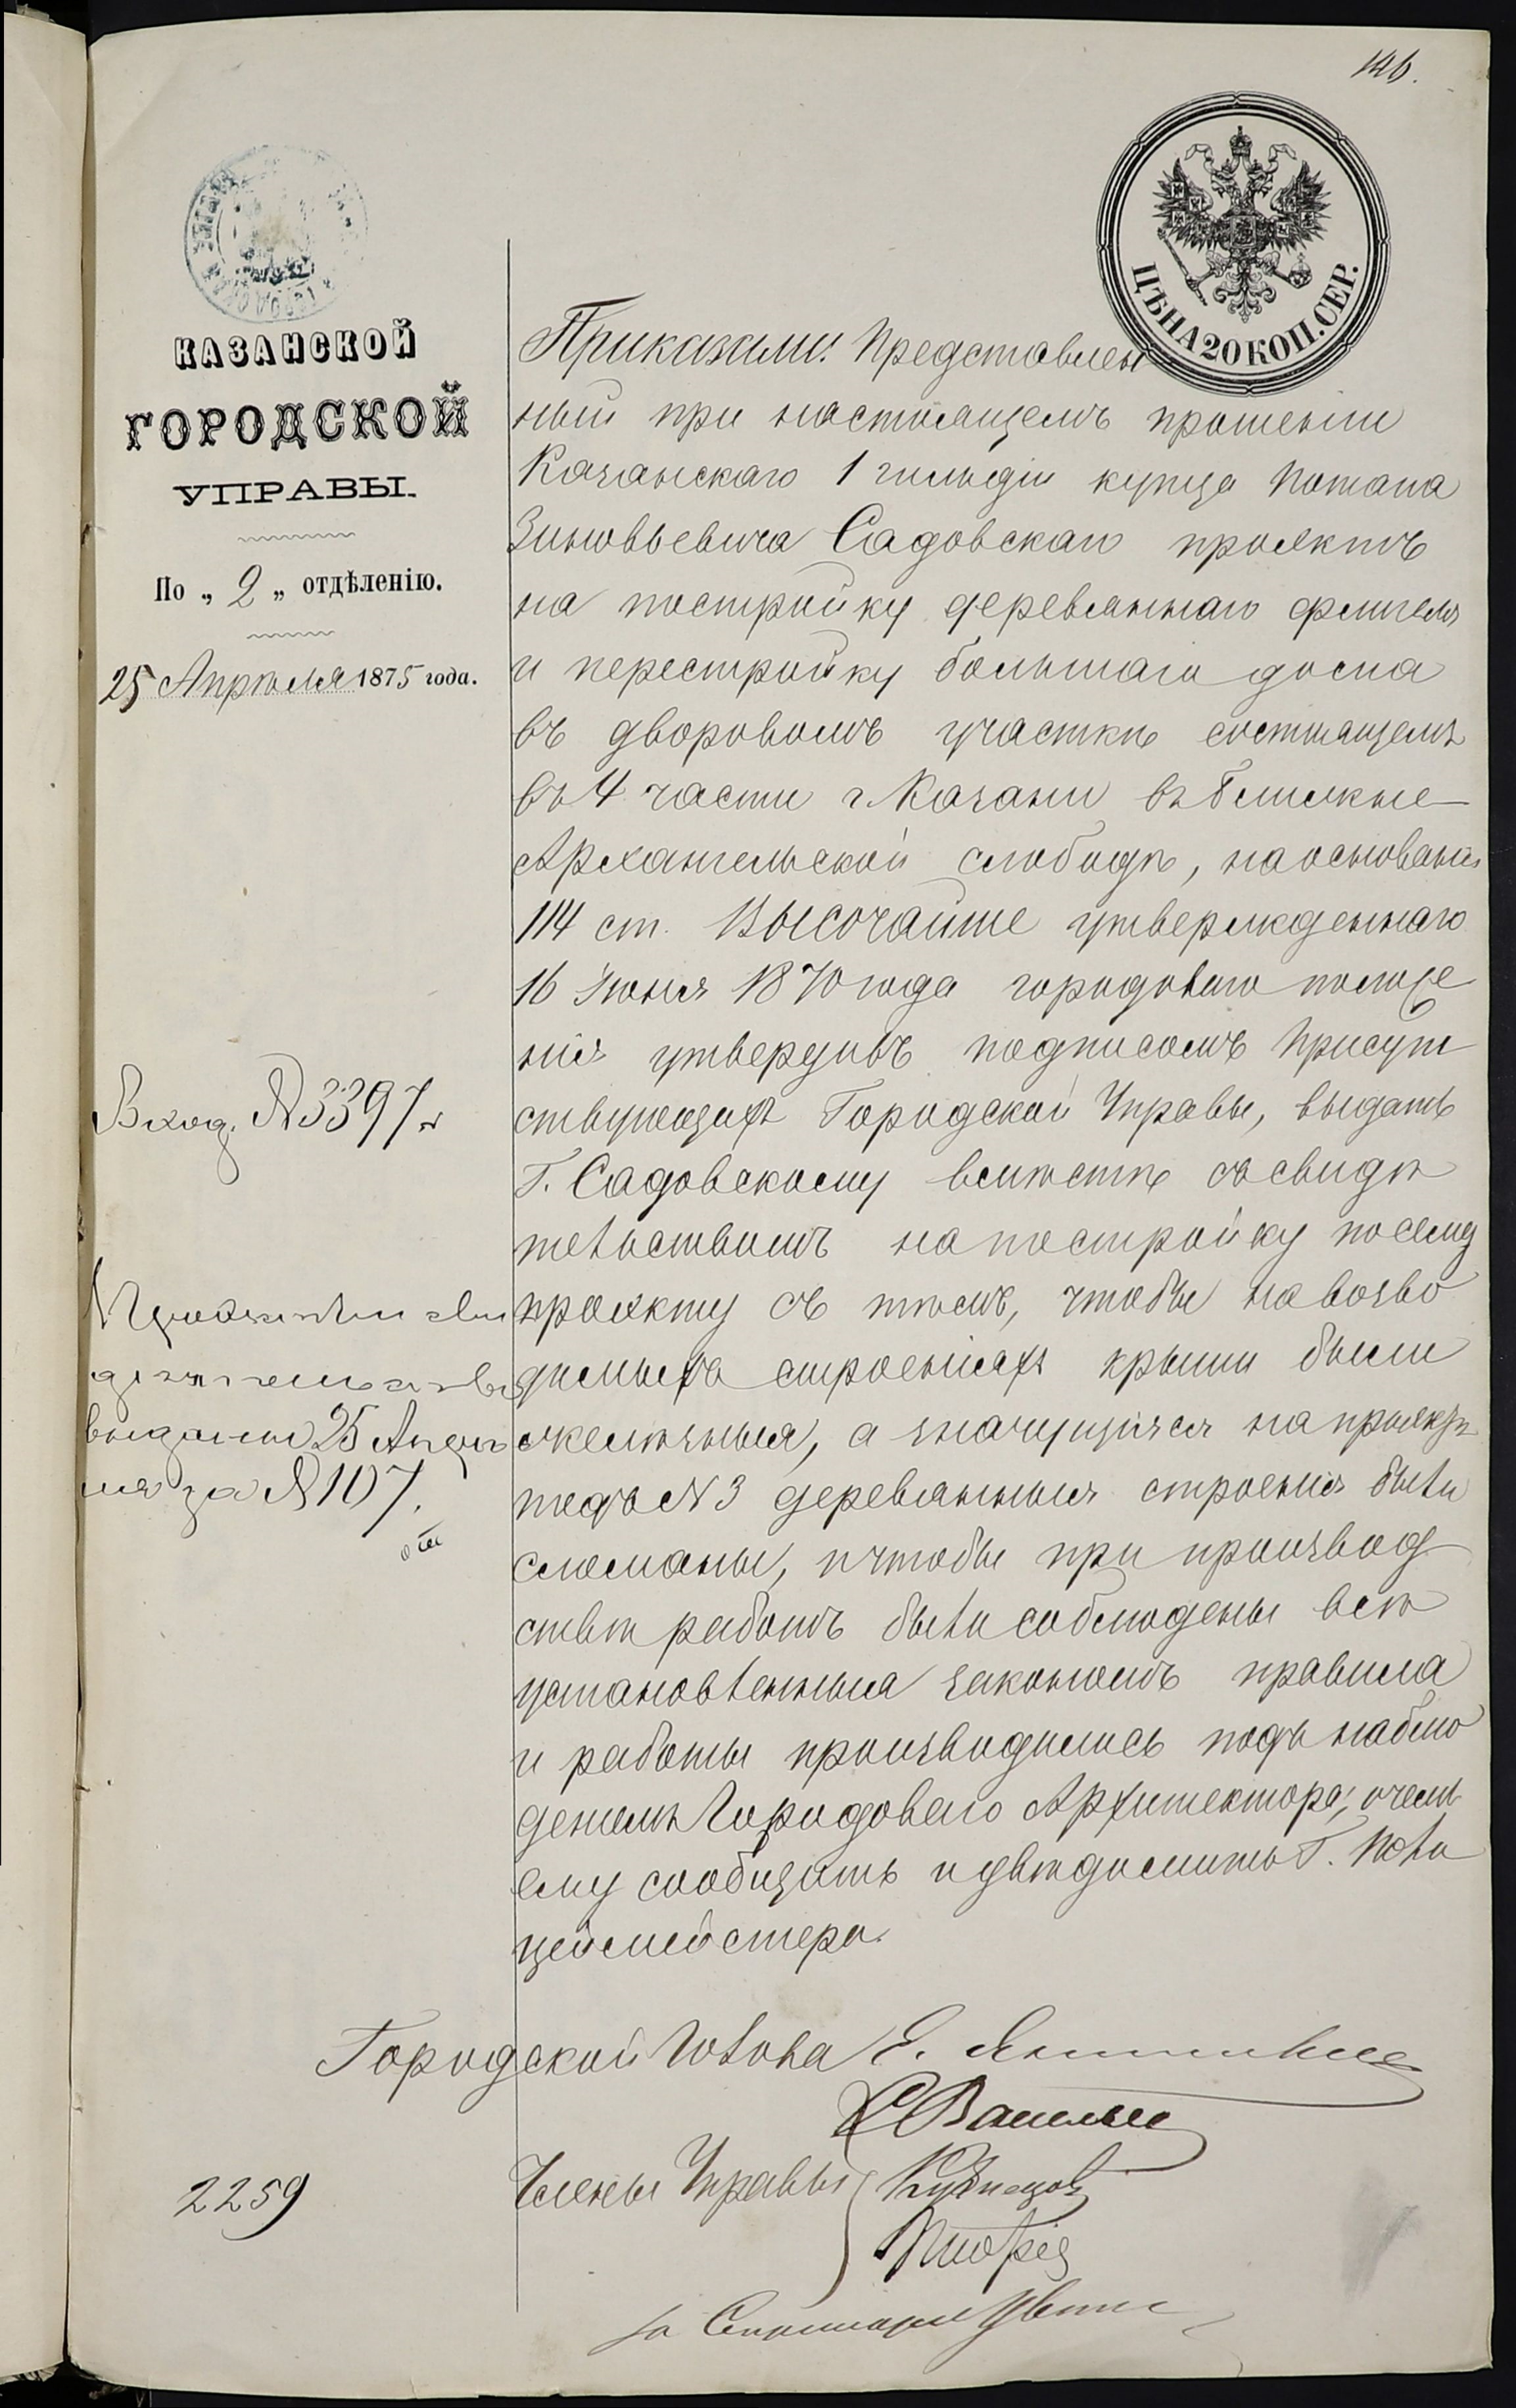 146.
ЦѢНА 20 КОП. СЕР.
КАЗАНСКОЙ
ГОРОДСКОЙ
УПРАВЫ.
По „ 2 „ отдѣленію.
25 Апрѣля 1875 года.
Приказали: Представлен
ный при настоящемъ прошеніи
Казанскаго 1 гильдіи купца Потапа
Зиновьевича Садовскаго проэктъ
на постройку деревяннаго флигеля
и перестройку большаго дома
въ дворовомъ участкѣ состоящемъ
въ 4 части г. Казани въ ближне
Архангельской слободѣ, на основаніи
114 ст. Высочайше утвержденнаго
16 Іюня 1870 года городоваго положе
нія утвердивъ подписомъ присут
ствующихъ Городской Управы, выдать
Г. Садовскому вмѣстѣ съ свидѣ
тельствомъ на постройку по сему
проэкту съ тѣмъ, чтобы на возво
димыхъ строеніяхъ крыши были
желѣзныя, а значущіяся на проэктѣ
подъ N 3 деревянныя строенія были
сломаны, и чтобы при производ
ствѣ работъ были соблюдены всѣ
установленныя закономъ правила
и работы производились подъ наблю
деніемъ Городоваго Архитектора; о чемъ
ему сообщить и увѣдомить Г. Поли
цеймейстера.
Вход. N 3397
Проэктъ и сви
дѣтельство
выданы 25 Апрѣ
ля за N 107.
Городской Голова Е.
С Васильев
Члены Управы Кузнецовъ
2259
за Секретаря